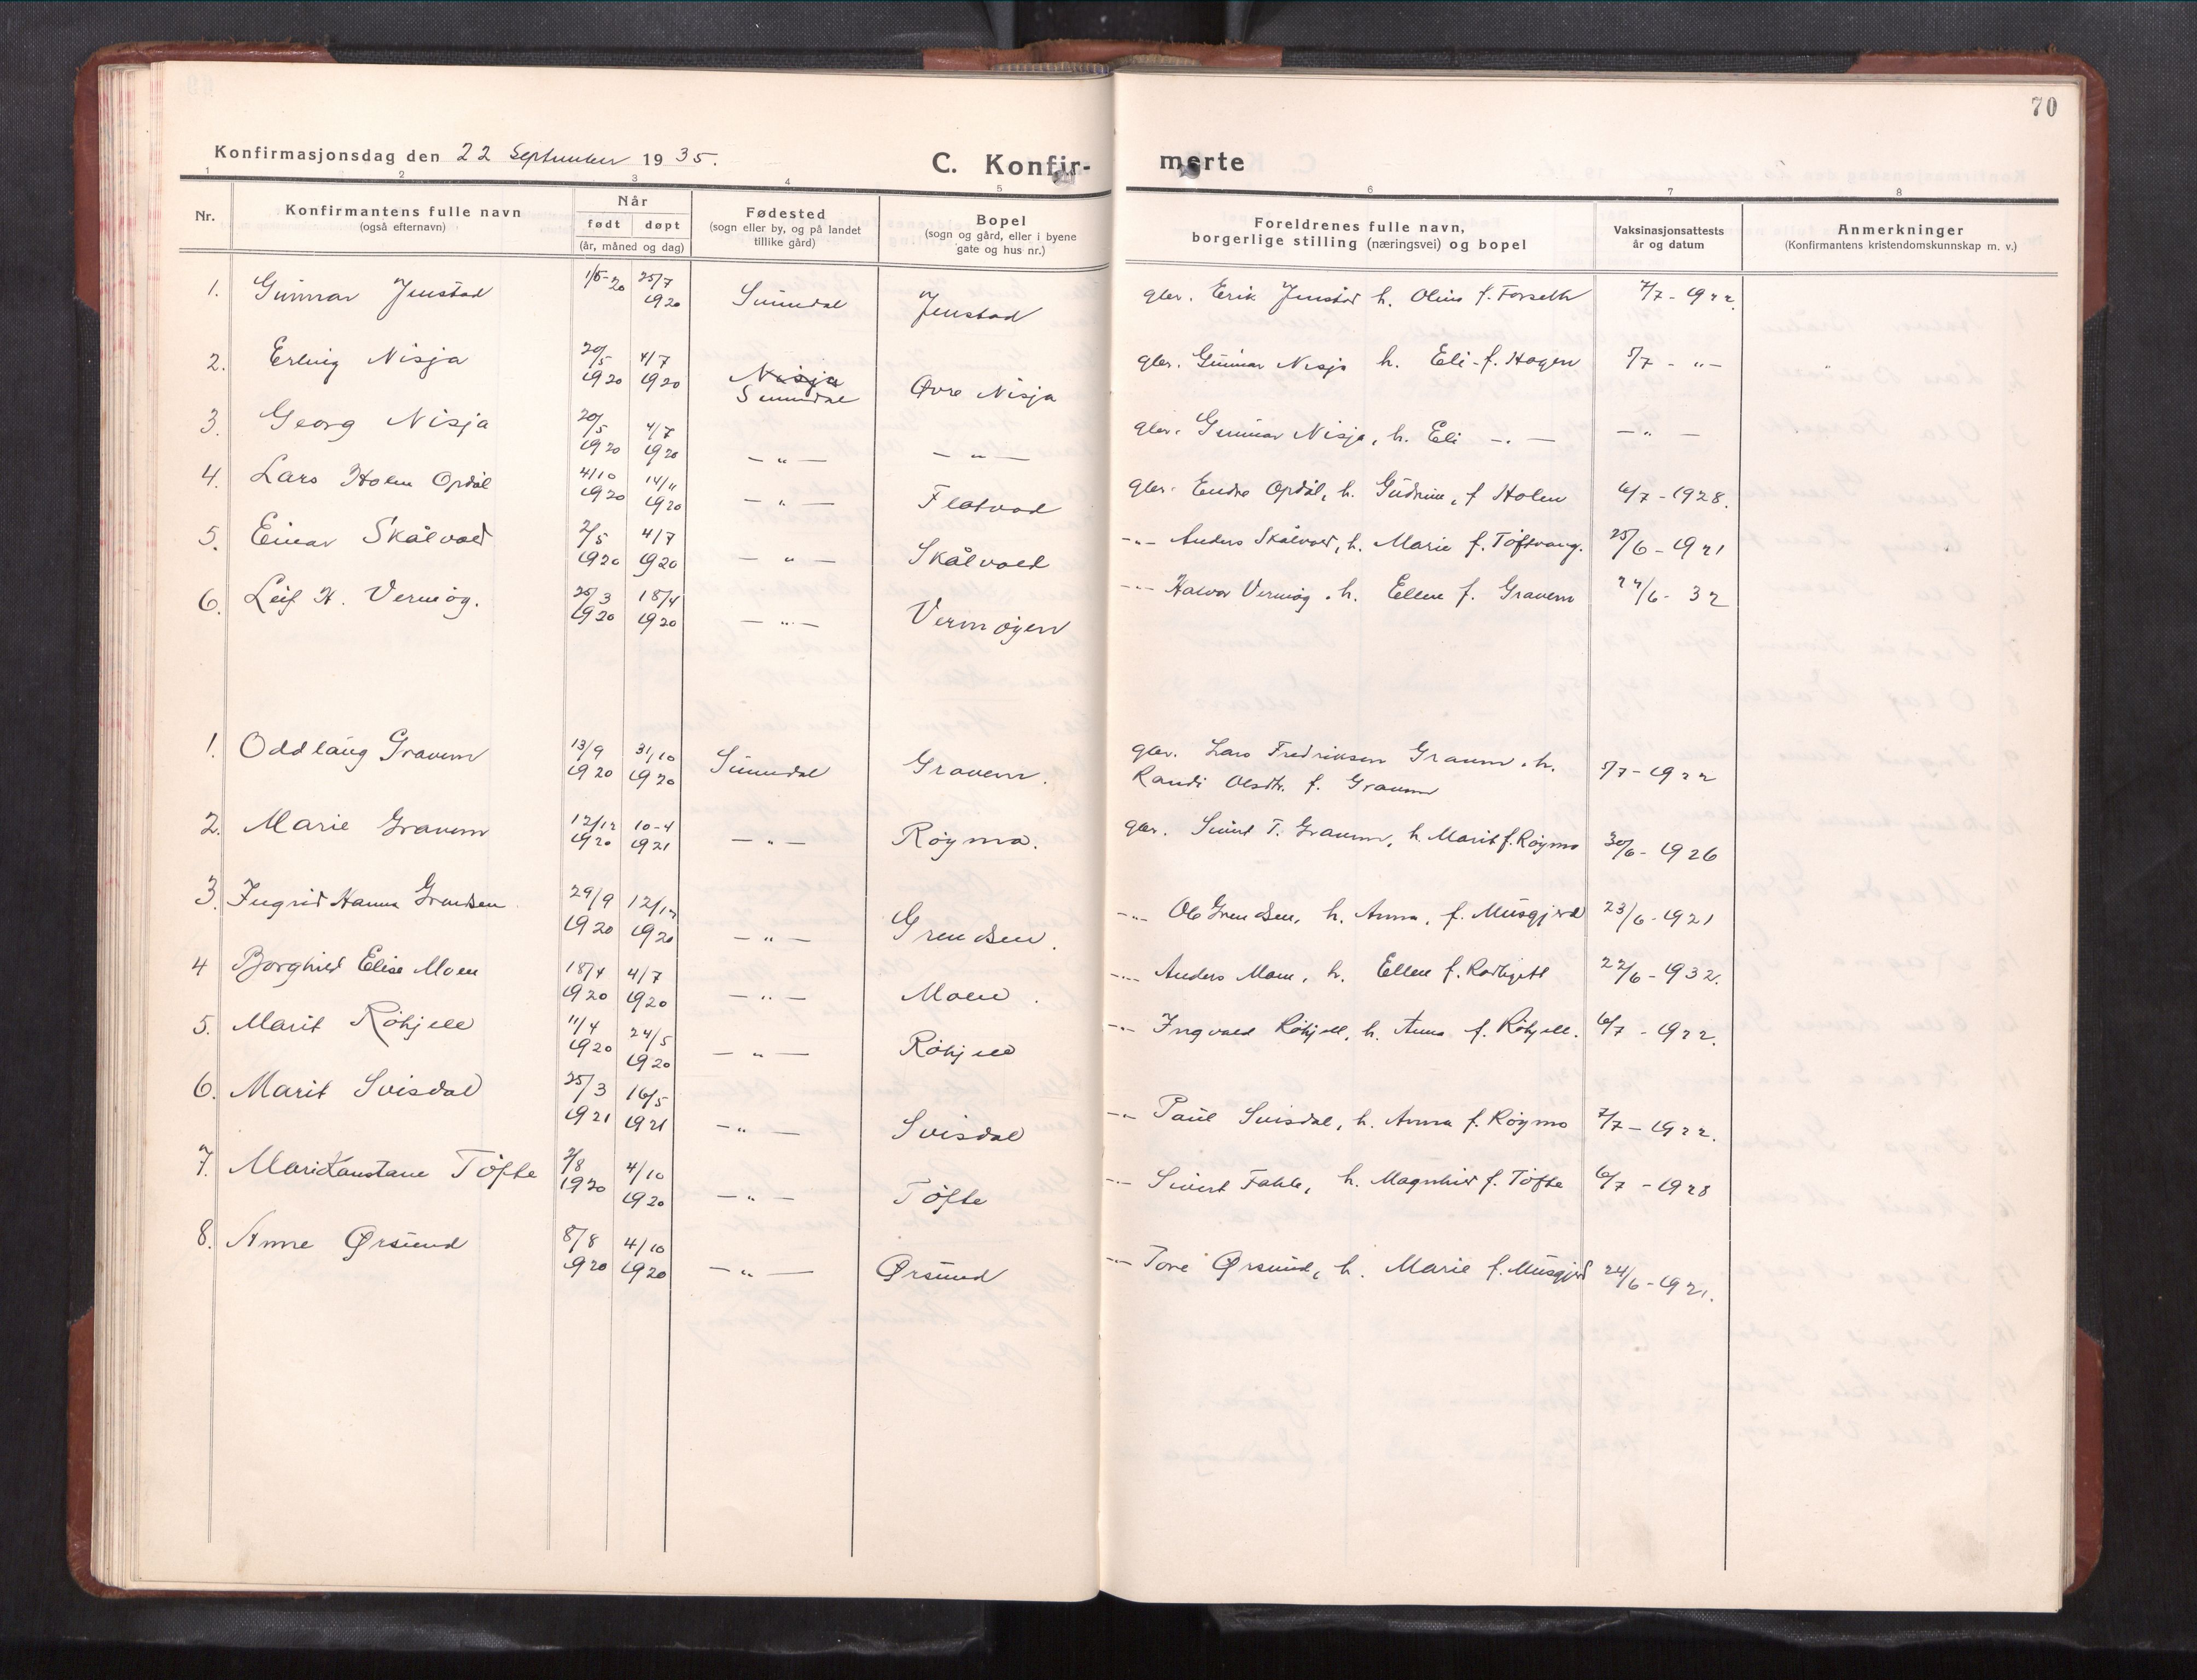 70
Konfirmasjonsdag den 22 September 1935.
C. Konfir-
merte
1 2 3 4 5 6 7 8
Nr.
Konfirmantens fulle navn
(også efternavn)
Når
født døpt
(år, måned og dag)
Fødested
(sogn eller by, og på landet
tillike gård)
Bopel
(sogn og gård, eller i byene
gate og hus nr.)
Foreldrenes fulle navn,
borgerlige stilling (næringsvei) og bopel
Vaksinasjonsattests
år og datum
Anmerkninger
(Konfirmantens kristendomskunnskap m. v.)
1. Gunnar Jenstad 1/5-20 25/7 1920 Sunndal Jenstad gbr. Erik Jenstad h. Oline f. Forseth 7/7-1922
2. Erling Nisja 20/5 1920 4/7 1920 Nisja Sunndal Øvre Nisja gbr. Gunnar Nisja h. Eli f. Hagen 5/7 - „ -
3. Georg Nisja 20/5 1920 4/7 1920 - „ - - „ - gbr. Gunnar Nisja, h. Eli - „ - - „ -
4. Lars Holen Opdøl 4/10 1920 14/11 1920 - „ - Flatvad gbr. Endre Opdøl, h. Gudrun, f Holen 6/7-1928.
5. Einar Skålvold 2/5 1920 4/7 1920 - „ - Skålvold - „ - Anders Skålvold, h. Marie f. Toftvang. 25/6-1921
6. Leif H. Vermøy. 25/3 1920 18/4 1920 - „ - Vermøyen - „ - Halvor Vermøy. h. Ellen f. Gravem 24/6-32
1. Oddlaug Gravem 13/9 1920 31/10 1920 Sunndal Gravem. gbr. Lars Fredriksen Gravem. h.
Randi Olsdtr. f. Gravem 5/7-1922
2. Marie Gravem 12/12 1920 10-4 1921 - „ - Røymo. gbr. Sivert T. Gravem, h. Marit f. Røymo 30/6-1926
3. Ingrid Hanna Grendsen 29/9 1920 12/12 1920 - „ - Grendsen. - „ - Ole Grendsen, h. Anna, f. Musgjerd 23/6-1921
4 Borghild Elise Moen 18/4 1920 4/7 1920 - „ - Moen. - „ - Anders Moen, h. Ellen f. 22/6-1932.
5. Marit Røhjell 11/4 1920 24/5 1920 - „ - Røhjell - „ - Ingvald Røhjell, h. Anna f. Røhjell. 6/7-1922.
6. Marit Svisdal 25/3 1921 16/5 1921 - „ - Svisdal - „ - Paul Svisdal, h. Anna f. Røymo 7/7-1922.
7. Mari Konstane Tøfte 2/8 1920 4/10 1920 - „ - Tøfte - „ - Sivert Fahle, h. Magnhild f. Tøfte 6/7-1928
8. Anne Ørsund 8/8 1920 4/10 1920 - „ - Ørsund - „ - Tore Ørsund, h. Marie f. Musgjerd 24/6-1921.